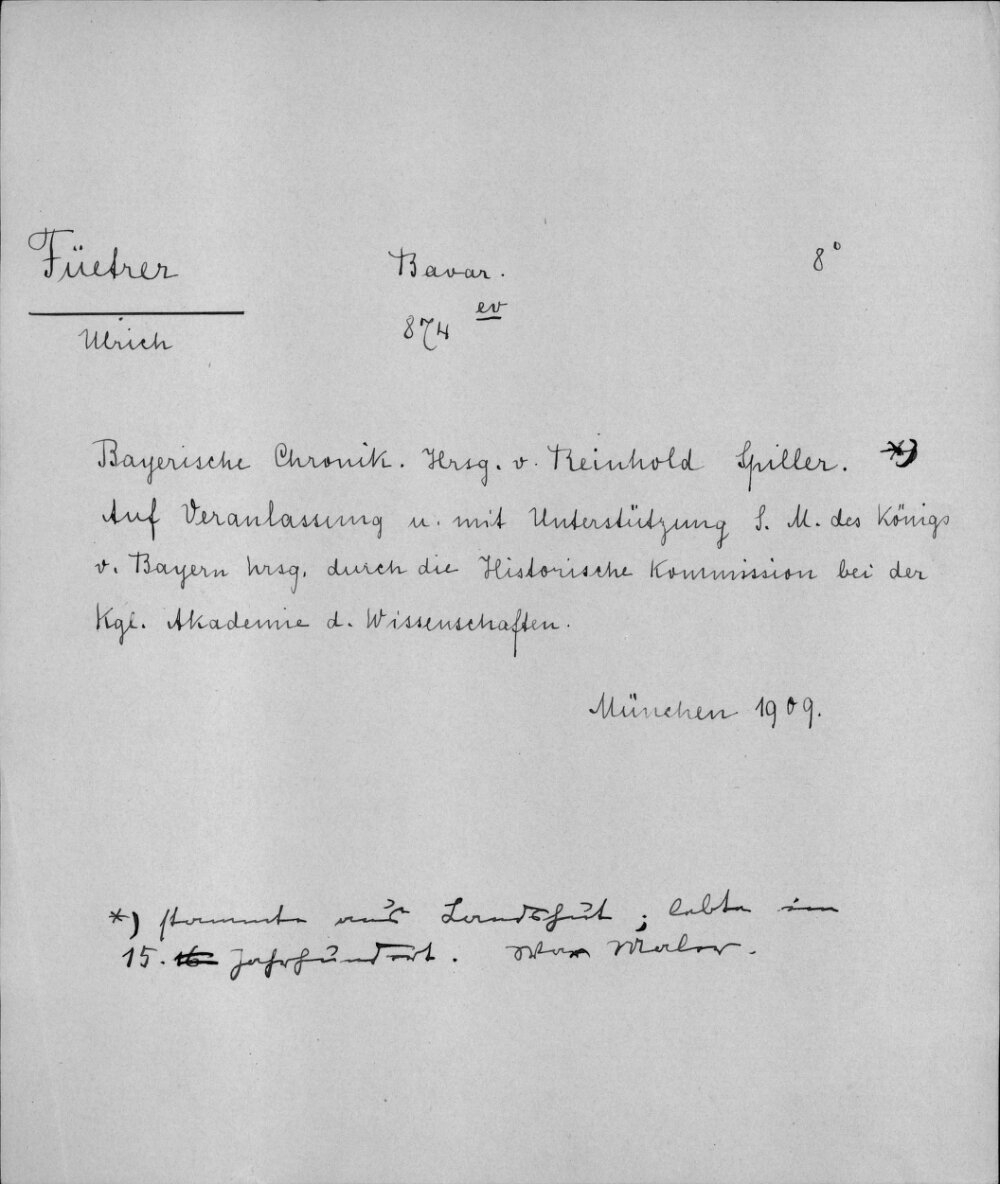 Füetrer
Bavar.
8°
874 ev
Ulrich
Bayerische Chronik. Hrsg. v. Reinhold Spiller. *)
Auf Veranlassung u. mit Unterstützung S. M. des Königs
v. Bayern hrsg. durch die Historische Kommission bei der
Kgl. Akademie d. Wissenschaften.
München 1909.
*) stammte aus Landshut; lebte im
15. Jahrhundert. War Maler.